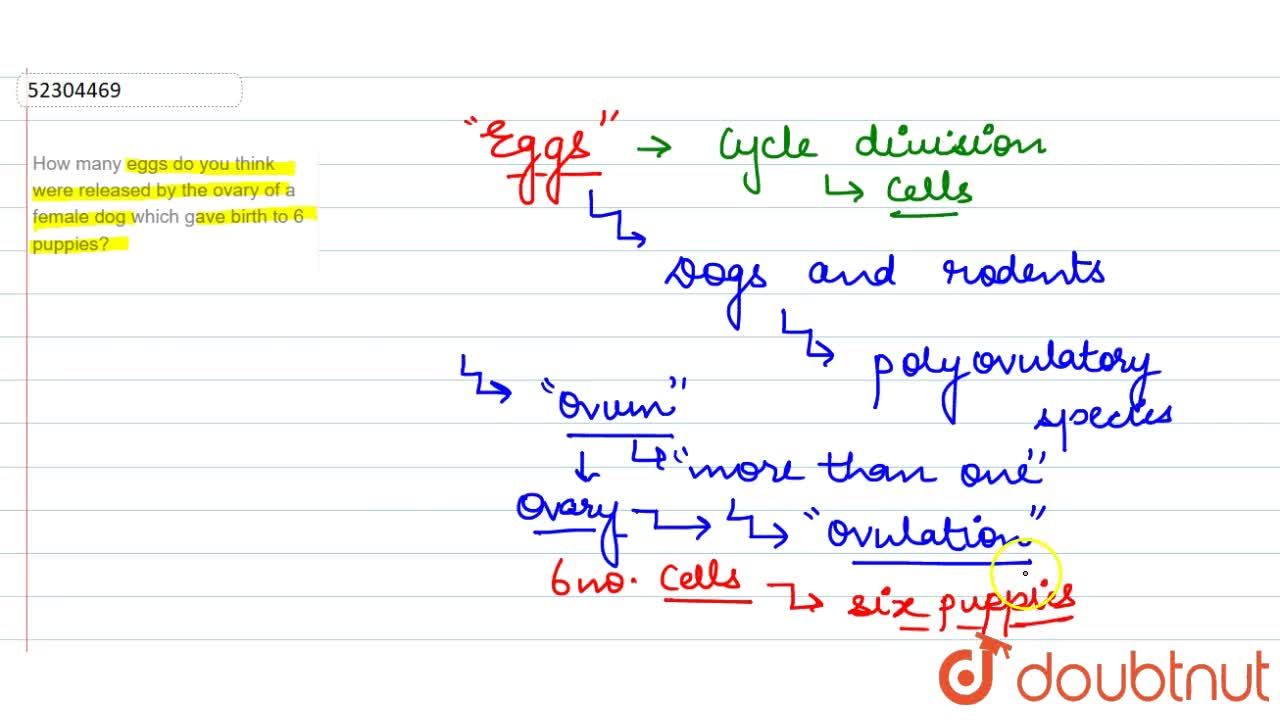 52304469
How many eggs do you think
were released by the ovary of a
female dog which gave birth to 6
puppies?
"Eggs" → Cycle division
↳ Cells
Dogs and rodents
polyovulatory
species
"Ovum"
↳ "more than one"
Ovary → "Ovulation"
6 no. Cells → six puppies
doubtnut